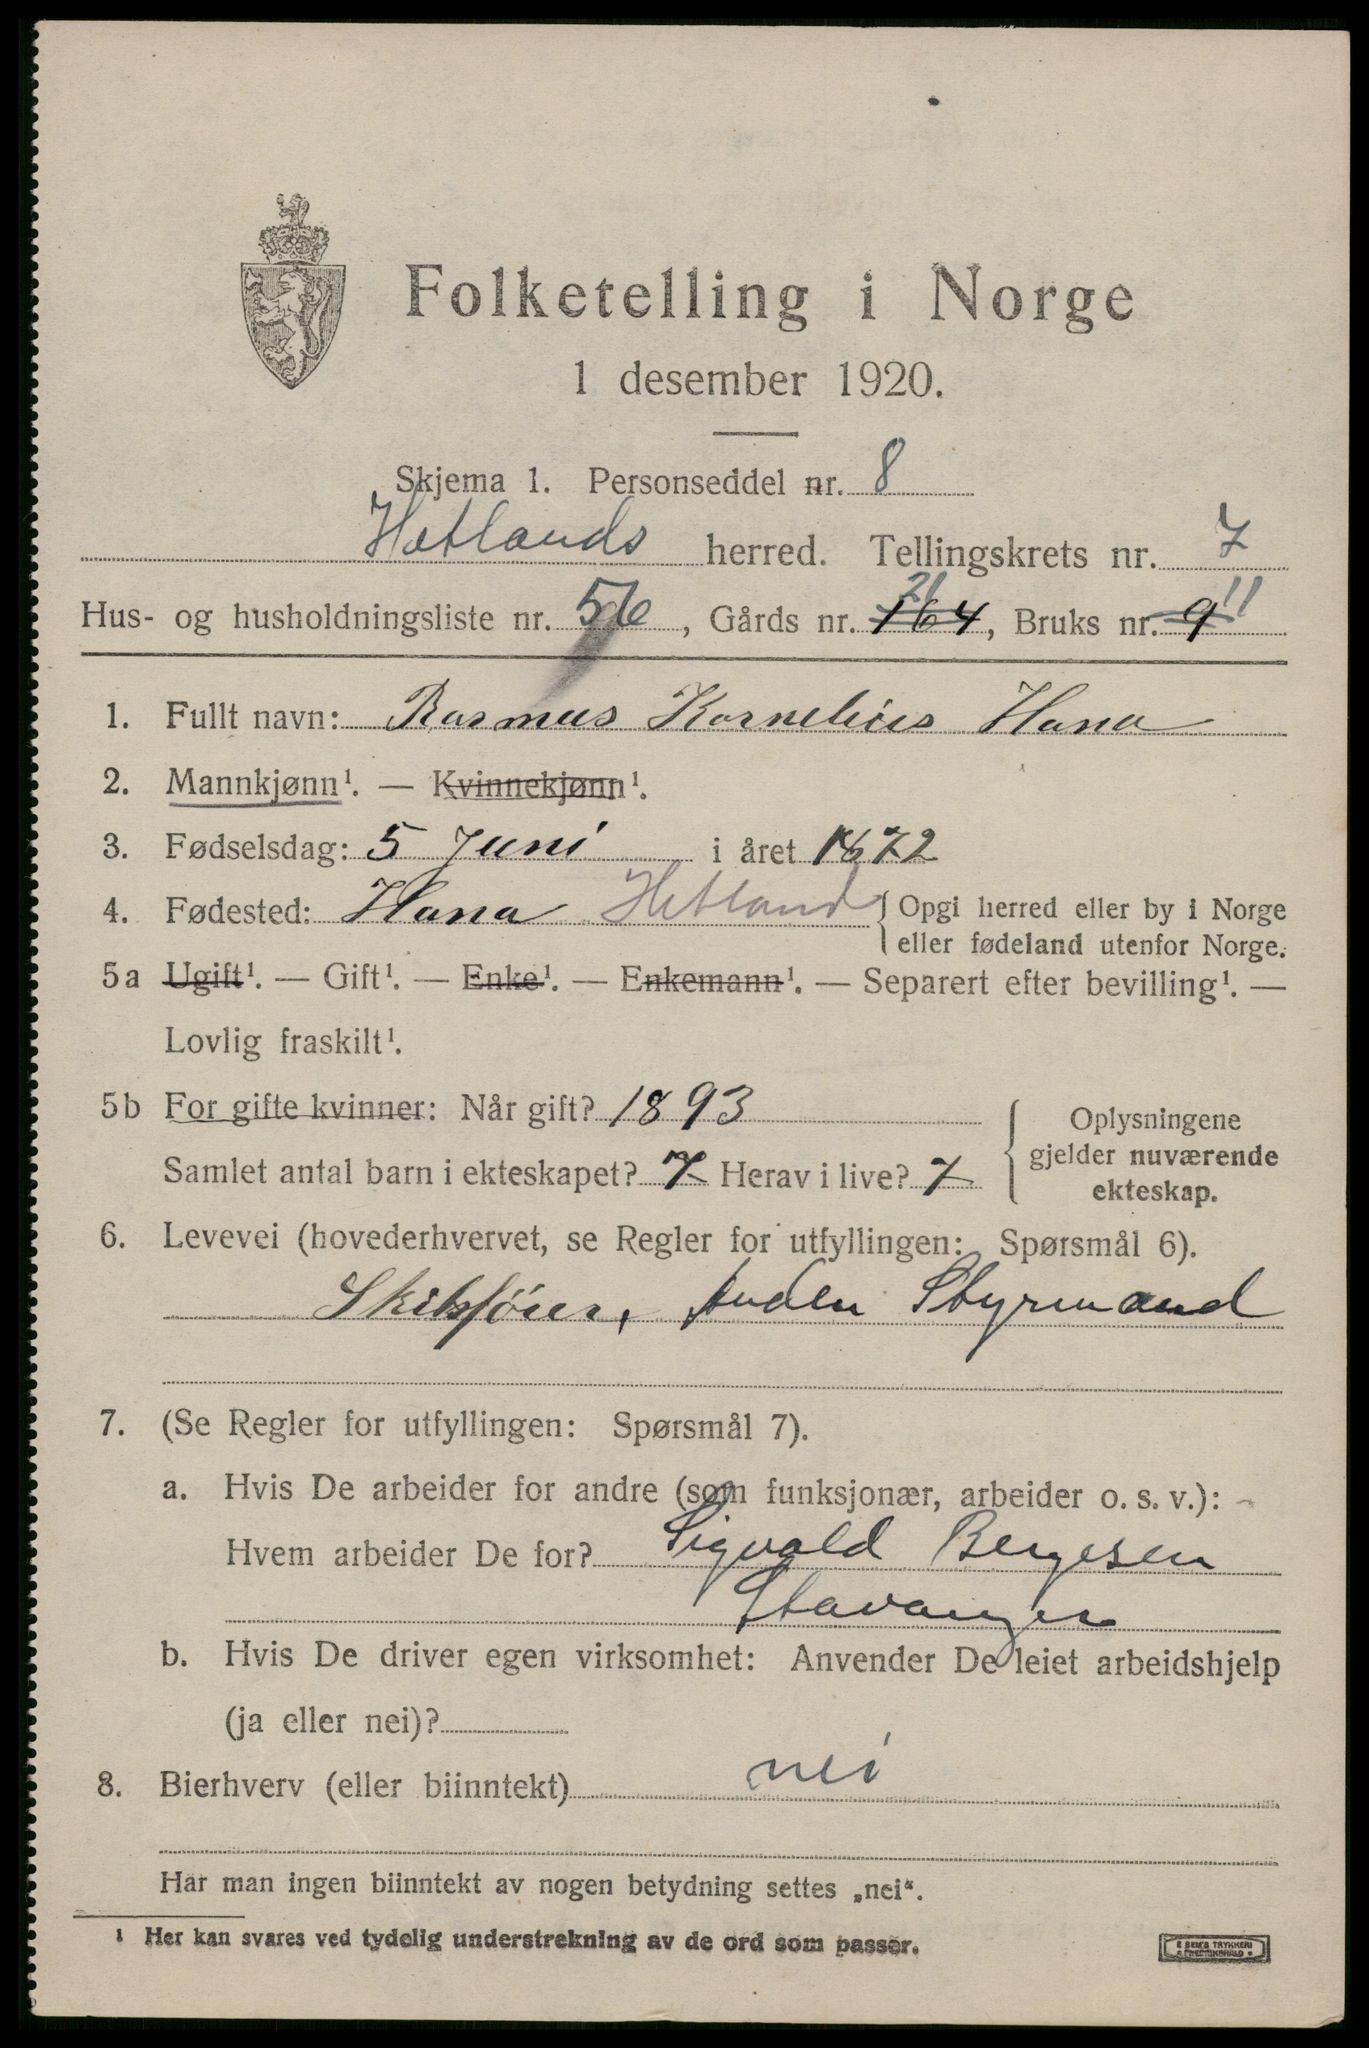 Folketelling i Norge
1 desember 1920.
Skjema 1. Personseddel nr. 8
Hetlands herred. Tellingskrets nr. 7
21 11
Hus- og husholdningsliste nr. 56, Gårds nr. 164, Bruks nr. 9
1. Fullt navn: Rasmus Kornelius Hana
2. Mannkjønn¹. — Kvinnekjønn¹.
3. Fødselsdag: 5 Juni i året 1872
4. Fødested: Hana Hetland { Opgi herred eller by i Norge
eller fødeland utenfor Norge.
5a Ugift¹. — Gift¹. — Enke¹. — Enkemann¹. — Separert efter bevilling¹. —
Lovlig fraskilt¹.
5b For gifte kvinner: Når gift? 1893
Samlet antal barn i ekteskapet? 7 Herav i live? 7
Oplysningene
gjelder nuværende
ekteskap.
6. Levevei (hovederhvervet, se Regler for utfyllingen: Spørsmål 6).
Skibsfører, Anden Styrmand
7. (Se Regler for utfyllingen: Spørsmål 7).
a. Hvis De arbeider for andre (som funksjonær, arbeider o. s. v.):
Hvem arbeider De for? Sigvald Bergesen
Stavanger
b. Hvis De driver egen virksomhet: Anvender De leiet arbeidshjelp
(ja eller nei)?
8. Bierhverv (eller biinntekt) nei
Har man ingen biinntekt av nogen betydning settes „nei“.
¹ Her kan svares ved tydelig understrekning av de ord som passer.
E SEM'S TRYKKERI
FREDRIKSHALD